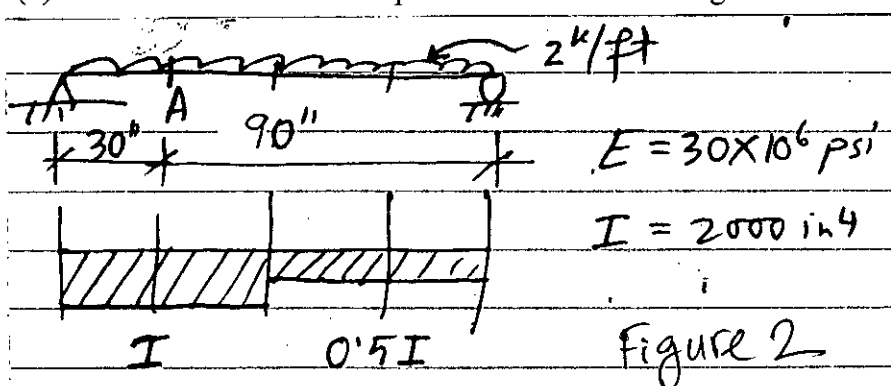 2ᵏ/ft
A
30"
90"
E = 30X10⁶ psi
I = 2000 in4
I
0.5I
Figure 2